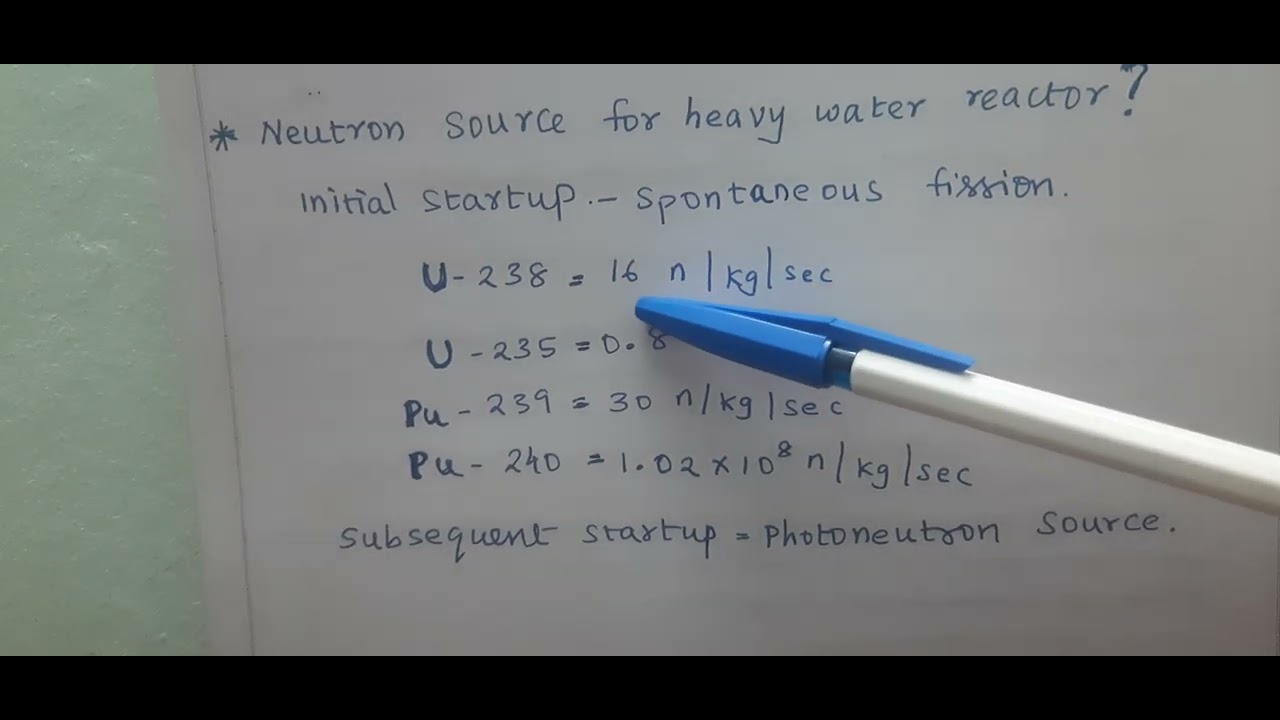 * Neutron source for heavy water reactor?
Initial startup.- spontaneous fission.
U-238 = 16 n/kg/sec
U-235 = 0.8
Pu-239 = 30 n/kg/sec
Pu-240 = 1.02×10⁸ n/kg/sec
subsequent startup = photoneutron source.